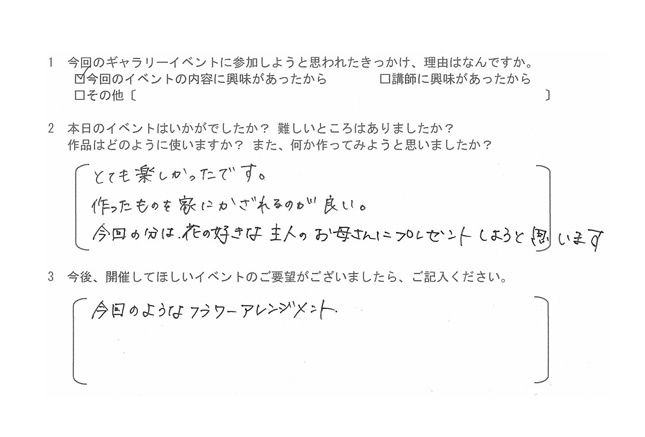 1 今回のギャラリーイベントに参加しようと思われたきっかけ、理由はなんですか。
☑今回のイベントの内容に興味があったから □講師に興味があったから
□その他〔 〕
2 本日のイベントはいかがでしたか? 難しいところはありましたか?
作品はどのように使いますか? また、何か作ってみようと思いましたか?
とても楽しかったです。
作ったものを家にかざれるのが良い。
今回の分は、花の好きな主人のお母さんにプレゼントしようと思います
3 今後、開催してほしいイベントのご要望がございましたら、ご記入ください。
今回のようなフラワーアレンジメント.